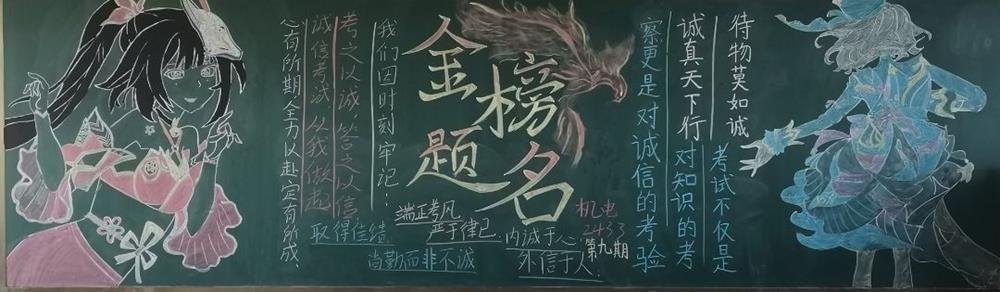 金榜题名
待物莫如诚
诚真天下行
考试不仅是
对知识的考
察更是对诚信的考验
我们因时刻牢记：
考之以诚，答之以信
诚信考试 从我做起
心有所期全力以赴定有所成、
取得佳绩
端正考风
严于律己
尚勤而非不诚
内诚于心
外信于人.
机电
2433
第九期